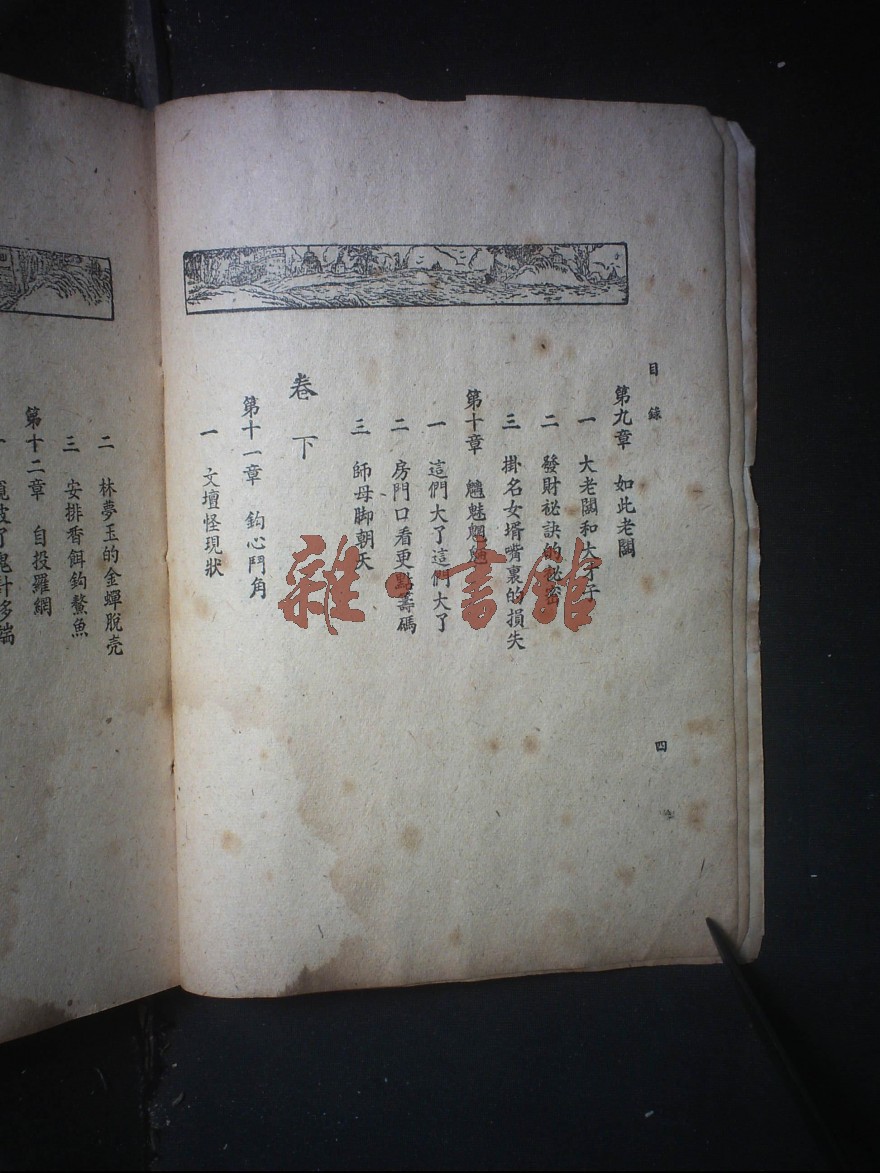 目錄
第九章 如此老闆
一 大老闆和大才子
二 發財祕訣的祕密
三 掛名女壻嘴裏的損失
第十章 魑魅魍魎
一 這們大了這們大了
二 房門口看更點籌碼
三 師母脚朝天
卷下
第十一章 鈎心鬥角
一 文壇怪現狀
四
二 林夢玉的金蟬脫壳
三 安排香餌釣鰲魚
第十二章 自投羅網
鬼計多端
雜·書館